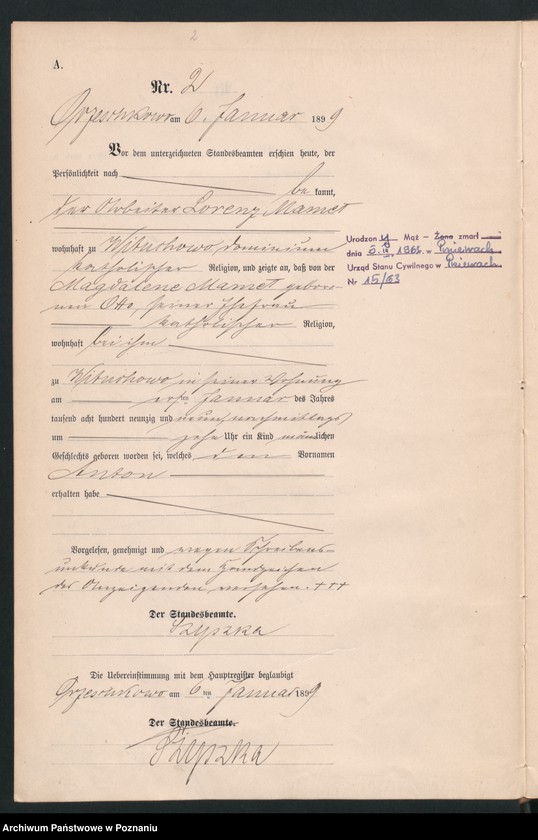 2
A.
Nr. 2
am 6. Januar 1899
Vor dem unterzeichneten Standesbeamten erschien heute, der
Persönlichkeit nach bekannt,
der Arbeiter Lorenz Mamet
wohnhaft zu Wituchowo, dominium
katholischer Religion, und zeigte an, daß von der
Magdalene Mamet gebore-
nen Otto, seiner Ehefrau
katholischer Religion,
wohnhaft bei ihm
zu Wituchowo in seiner Wohnung
am ersten Januar des Jahres
tausend acht hundert neunzig und neun nachmittags
um zehn Uhr ein Kind männlichen
Geschlechts geboren worden sei, welches den Vornamen
Anton
erhalten habe
Vorgelesen, genehmigt und wegen Schreibens-
unkunde mit dem Handzeichen
des Anzeigenden versehen. +++
Der Standesbeamte.
Szyszka
Die Uebereinstimmung mit dem Hauptregister beglaubigt
am 6ten Januar 1899
Der Standesbeamte.
Szyszka
Urodzon y Mąż – Żona zmarł
dnia w Pniewach
Urząd Stanu Cywilnego w Pniewach
Nr 15/63
Archiwum Państwowe w Poznaniu